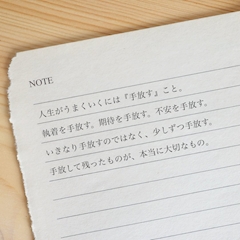 NOTE
人生がうまくいくには『手放す』こと。
執着を手放す。期待を手放す。不安を手放す。
いきなり手放すのではなく、少しずつ手放す。
手放して残ったものが、本当に大切なもの。